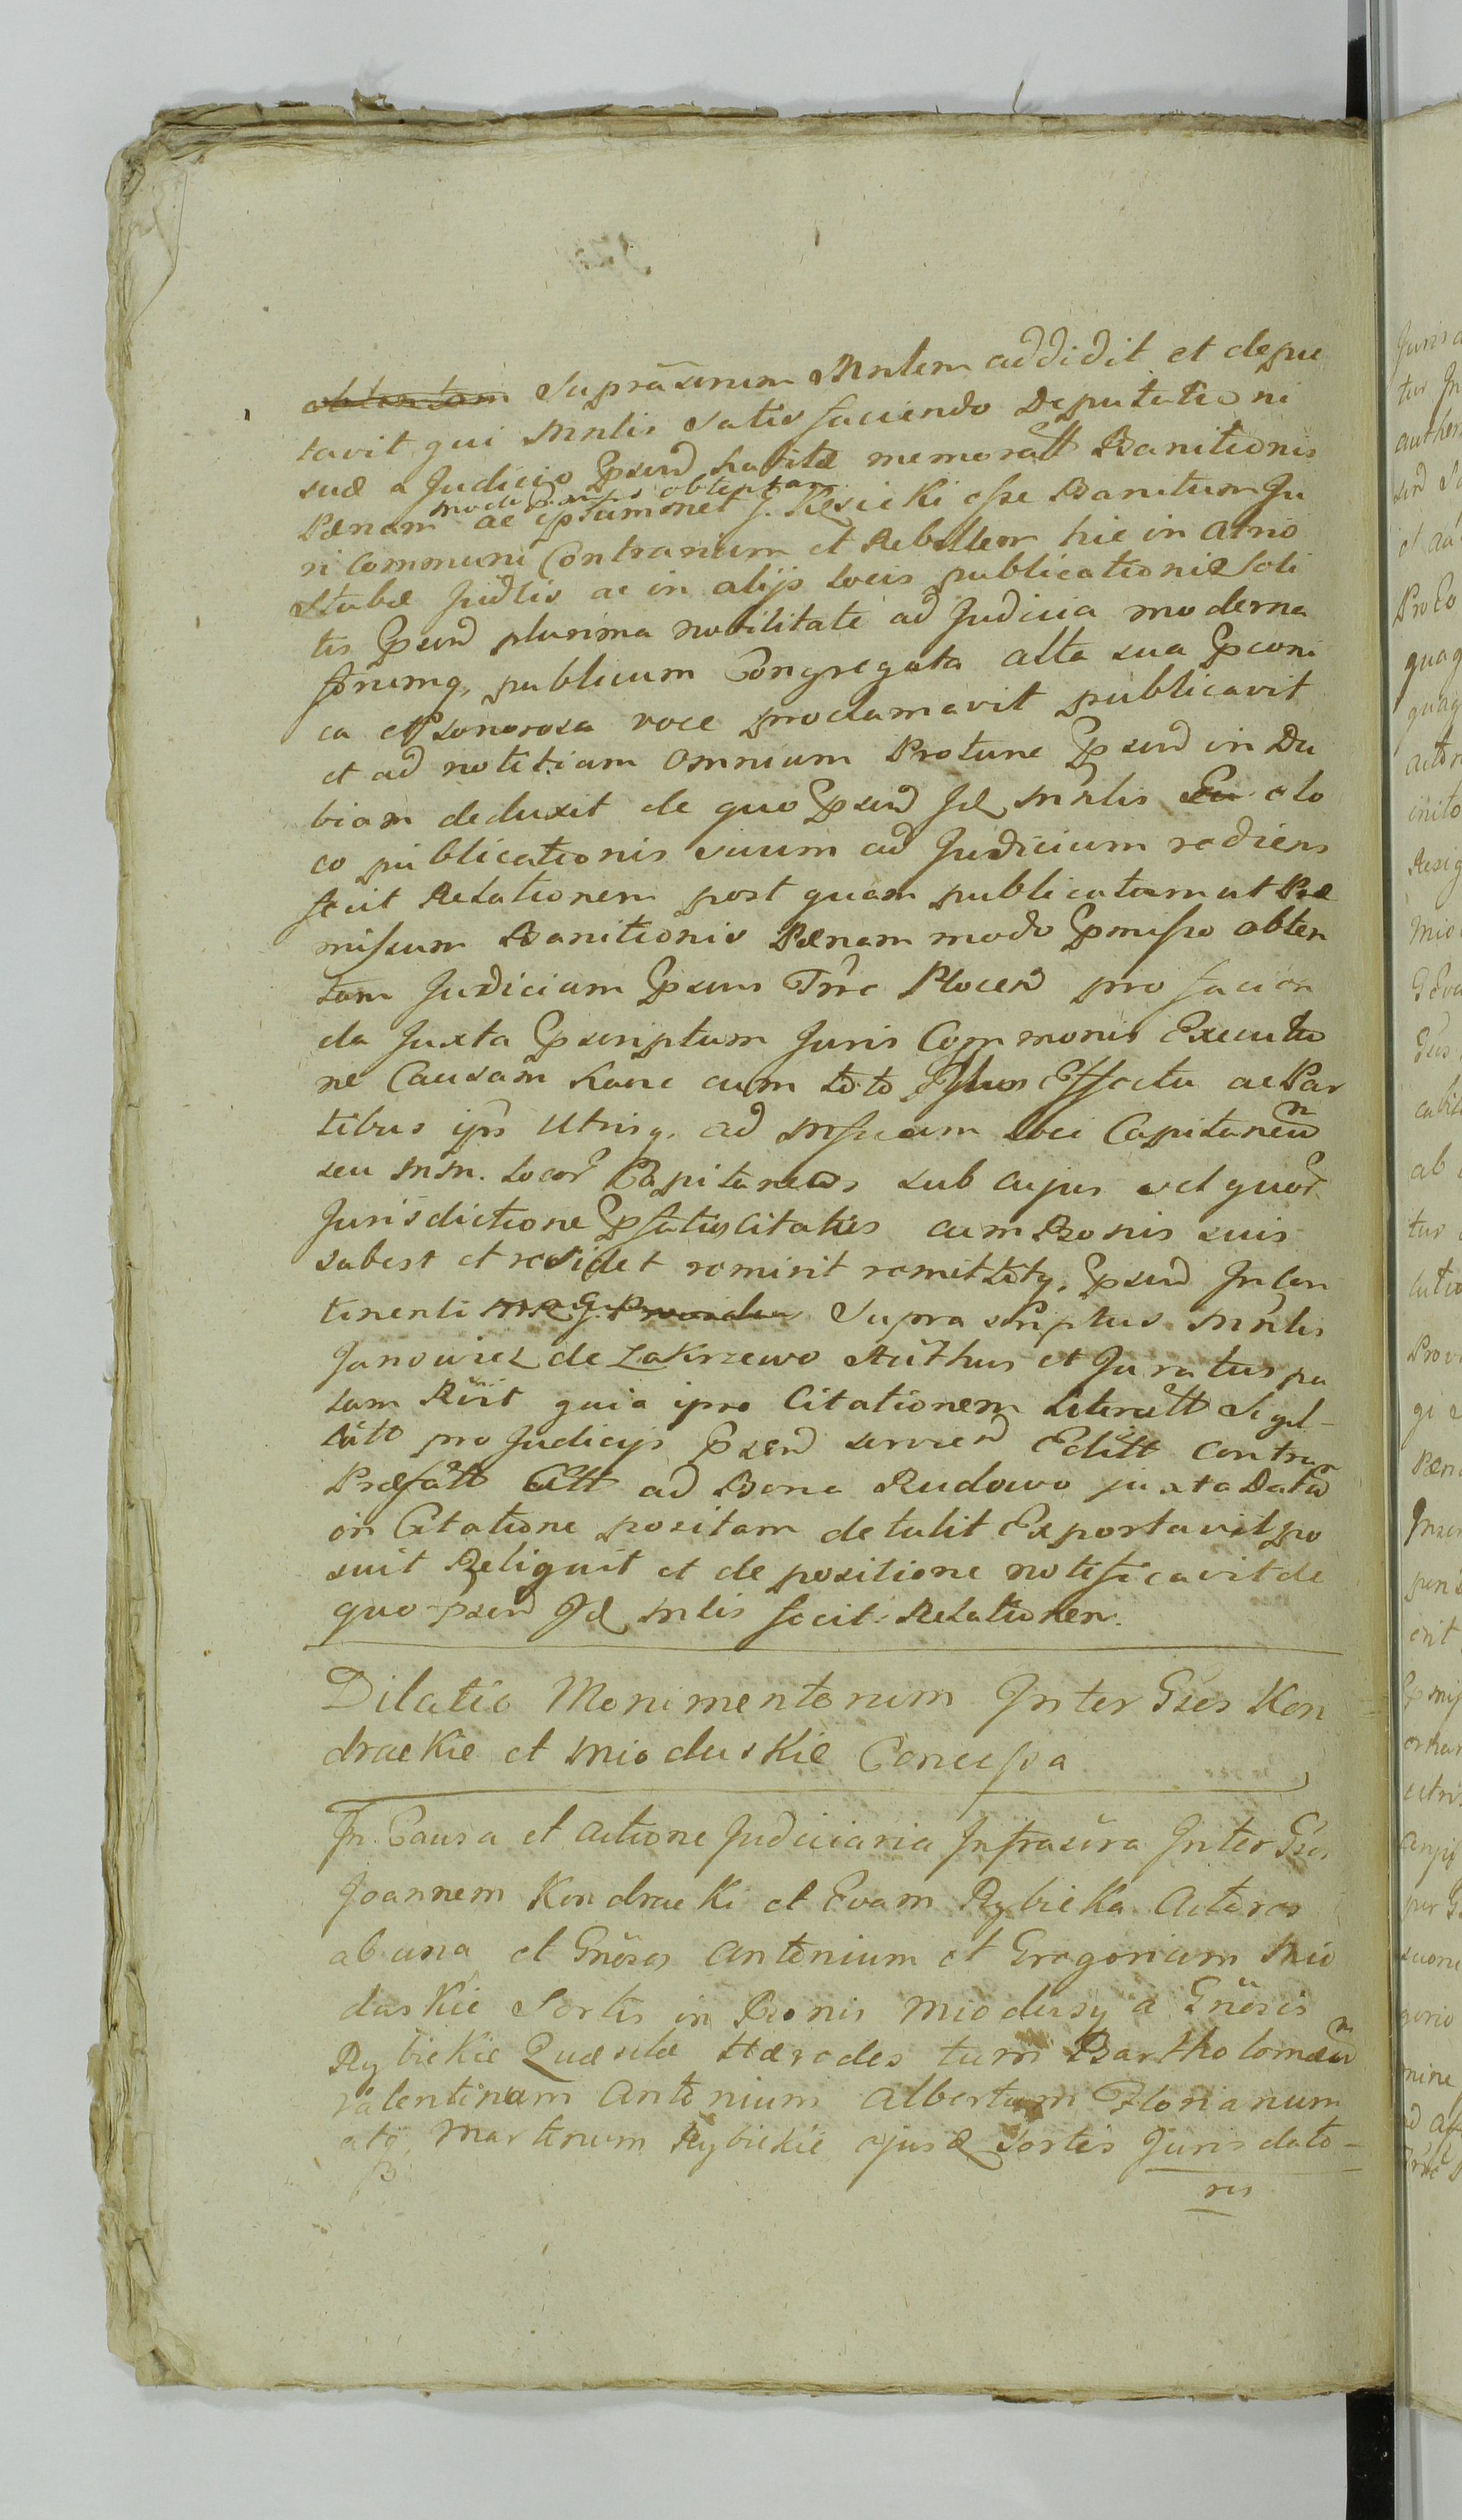 obtentam Suprascrum Mnlem addidit et depu
tavit qui Mnlis satis faciendo Deputationi
suæ a Judicio Psend habitæ memoratt Banitionis
modo Pmisso obtentam
Pænam ac ipsummet G. Kęsicki esse Banitum Ju
ri Communi Contrarium et Rebellem hic in atrio
Stubæ Judlis ac in alijs locis publicationis Soli
tis Psend plurima nobilitate ad Judicia moderna
forumq. publicum Congregata alta sua Pconi
ca et sonorosa voce proclamavit publicavit
et ad notitiam omnium Protunc Psend in Du
biam deduxit de quo Psend Id Mnlis a lo
co publicationis suum ad Judicium rediens
fecit Relationem post quam publicatam ut Præ
missum Banitionis Pænam modo Pmisso obten
tam Judicium Psens Trre Plocen pro facien
da Juxta Pscriptum Juris Communis Executio
ne Causam hanc cum toto Effectu ac Par
tibus ijs Utrisq. ad Mficum loci Capitaneum
seu MM. locor Capitaneos sub cujus vel quor
Jurisdictione Pfatus Citatus cum Bonis suis
subest et residet remisit remittitq. Psend In con
tinenti Supra scriptus Mnlis
Janowicz de Zakrzewo Authus et Juratus pa
lam Rnit quia ipse Citationem Literatt Sigil-
latt pro Judicijs Psend servien Editt contra
Præfatt Citt ad Bona Rudowo juxta Datam
in Citatione positam detulit Exportavit po
suit Reliquit et de positione notificavit de
quo psend Id Mlis fecit Relationem.
Dilatio Monimentorum Inter Gsos Kon
drackie et Mioduskie Concessa
In Causa et actione Judiciaria Infrascra Inter Gsos
Joannem Kondracki et Evam Rybicka Actores
ab una et Gnosos Antonium et Gregorium Mio
duskie Sortis in Bonis Miodusy a Gnosis
Rybickie Quæsitæ Hæredes tum Bartholomæum
Valentinum Antonium Albertum Florianum
atq. Martinum Rybickie ejusd Sortis Juris dato-
res